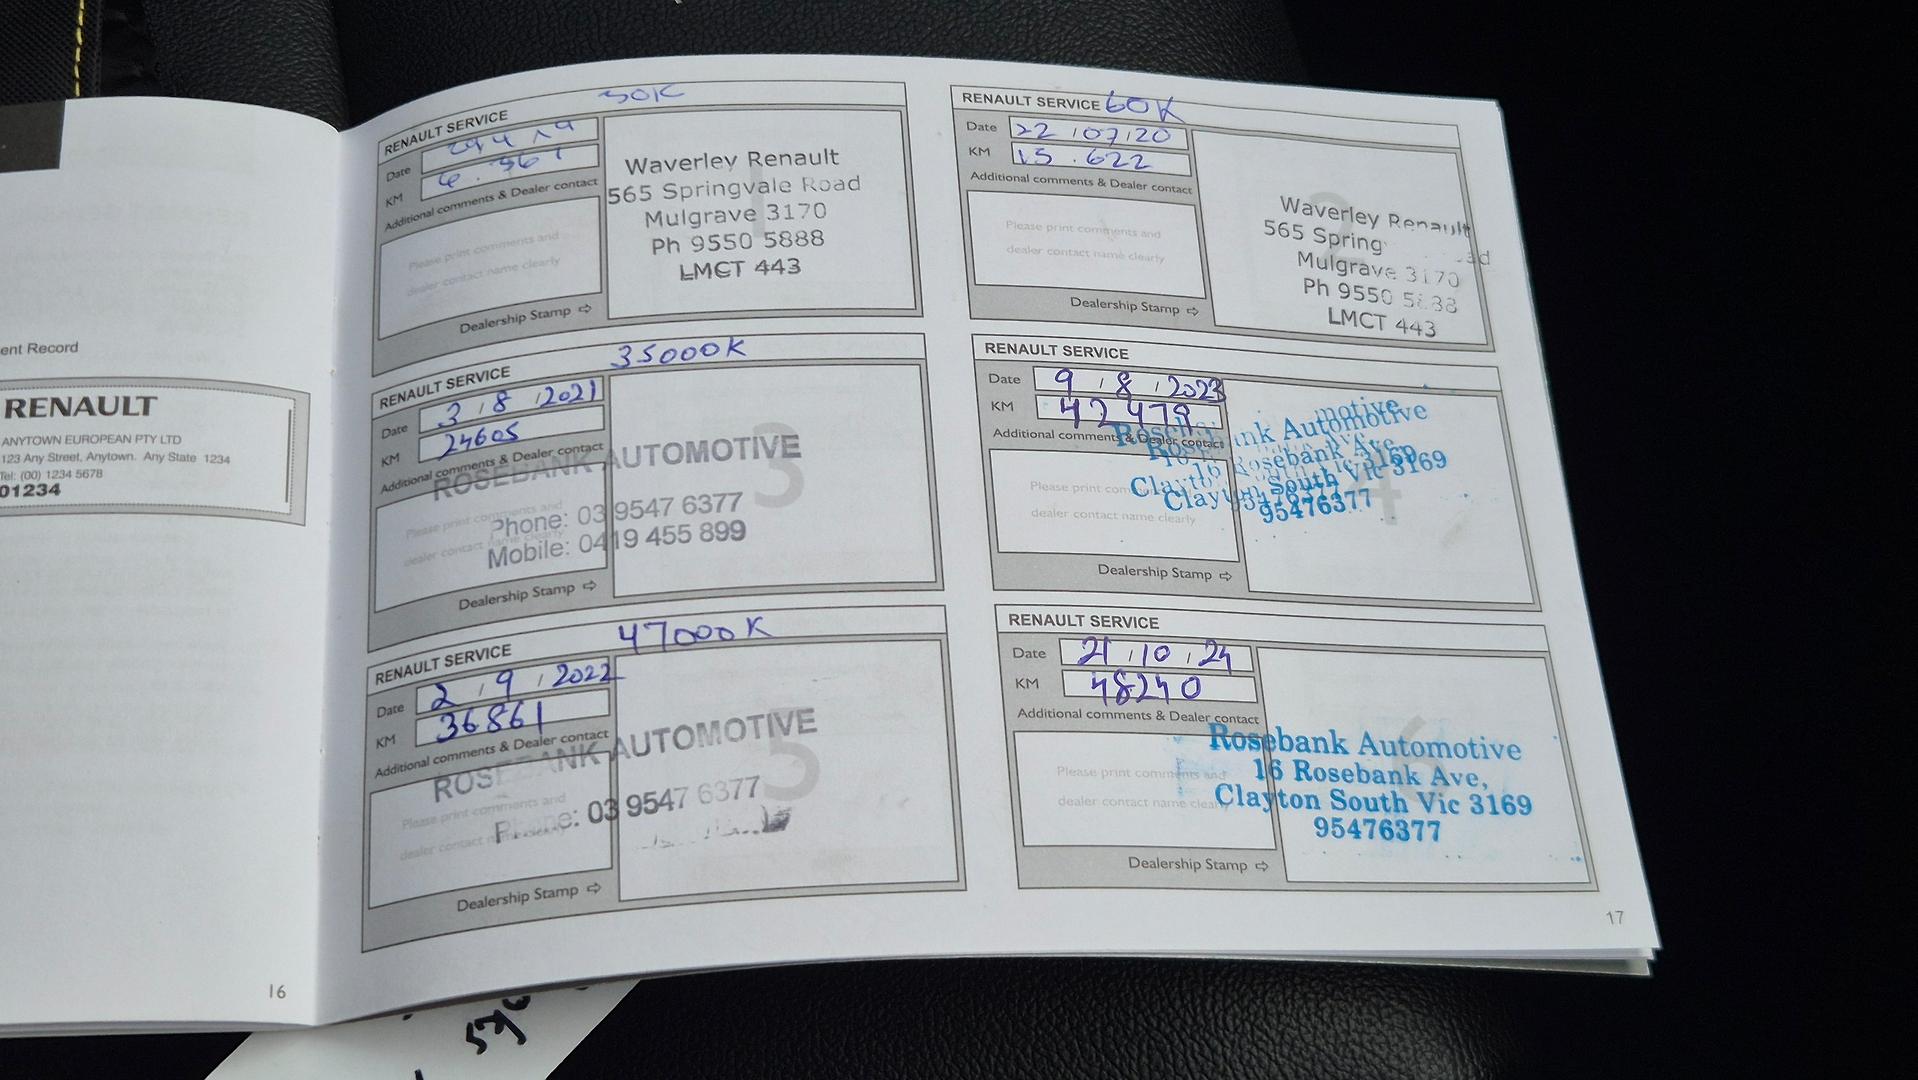 ent Record
RENAULT
ANYTOWN EUROPEAN PTY LTD
123 Any Street, Anytown. Any State 1234
Tel: (00) 1234 5678
01234
16
30K
RENAULT SERVICE
Date
KM
Additional comments & Dealer contact
Please print comments and
dealer contact name clearly
Dealership Stamp ⇨
1
Waverley Renault
565 Springvale Road
Mulgrave 3170
Ph 9550 5888
LMCT 443
35000K
RENAULT SERVICE
Date 3 / 8 / 2021
KM 24605
Additional comments & Dealer contact
Please print comments and
dealer contact name clearly
Dealership Stamp ⇨
3
ROSEBANK AUTOMOTIVE
Phone: 03 9547 6377
Mobile: 0419 455 899
47000K
RENAULT SERVICE
Date 2 / 9 / 2022
KM 36861
Additional comments & Dealer contact
Please print comments and
dealer contact name clearly
Dealership Stamp ⇨
5
ROSEBANK AUTOMOTIVE
Phone: 03 9547 6377
RENAULT SERVICE 60K
Date 22 / 07 / 20
KM 15.622
Additional comments & Dealer contact
Please print comments and
dealer contact name clearly
Dealership Stamp ⇨
2
Waverley Renault
565 Spring ad
Mulgrave 3170
Ph 9550 5888
LMCT 443
RENAULT SERVICE
Date 9 / 8 / 2023
KM 42479
Additional comments & Dealer contact
Please print comments and
dealer contact name clearly
Dealership Stamp ⇨
4
Rosebank Automotive
16 Rosebank Ave,
Clayton South Vic 3169
95476377
RENAULT SERVICE
Date 21 / 10 / 24
KM 48240
Additional comments & Dealer contact
Please print comments and
dealer contact name clearly
Dealership Stamp ⇨
6
Rosebank Automotive
16 Rosebank Ave,
Clayton South Vic 3169
95476377
17